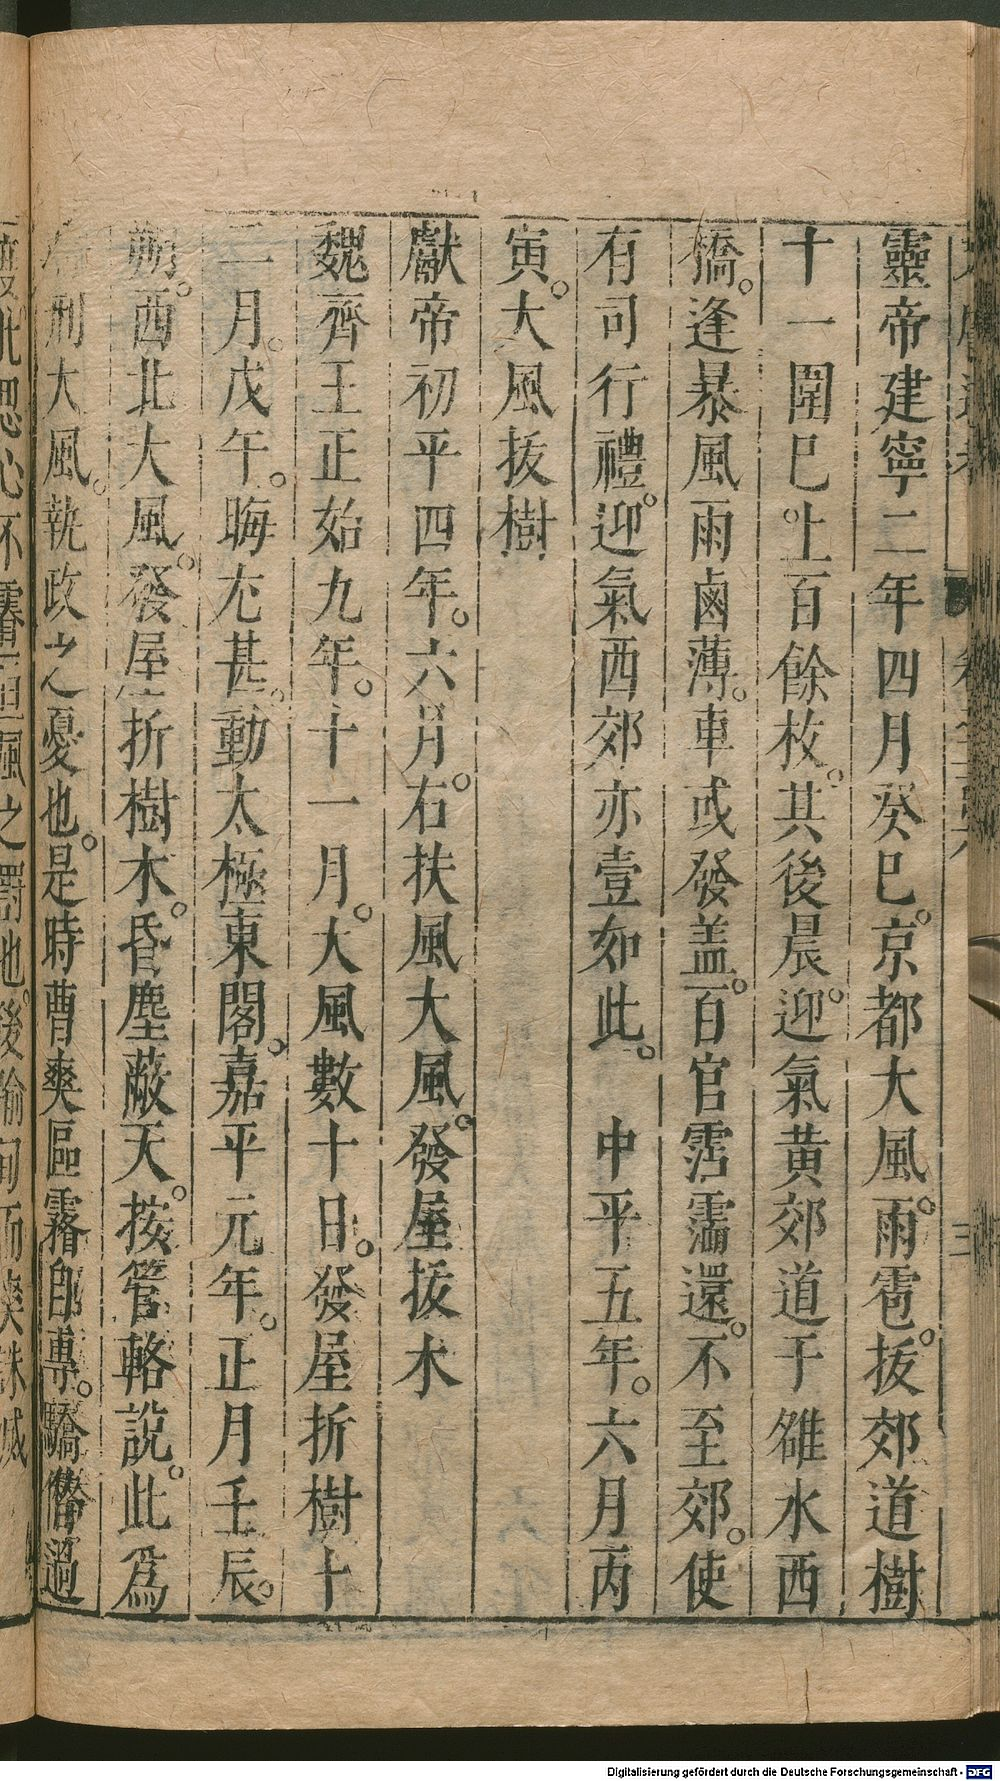 靈帝建寧二年四月癸巳。京都大風。雨雹。拔郊道樹
十一圍巳。上百餘枚。其後晨。迎氣黄郊道于雒水西
橋。逢暴風雨鹵薄。車或發盖。百官霑濡還。不至郊。使
有司行禮。迎氣西郊亦壹如此。　中平五年。六月丙
寅。大風拔樹
獻帝初平四年。六月。右扶風大風。發屋拔木
魏齊王正始九年。十一月。大風數十日。發屋折樹十
二月。戊午。晦尤甚。動太極東閣。嘉平元年。正月壬辰。
朔。西北大風。發屋折樹木。昏塵蔽天。按管輅說。此為
刑大風。執政之憂也。是時曹爽區霿自專。驕僭過
思心不霿之罰也。後踰旬而爽誅滅
Digitalisierung gefördert durch die Deutsche Forschungsgemeinschaft - DFG